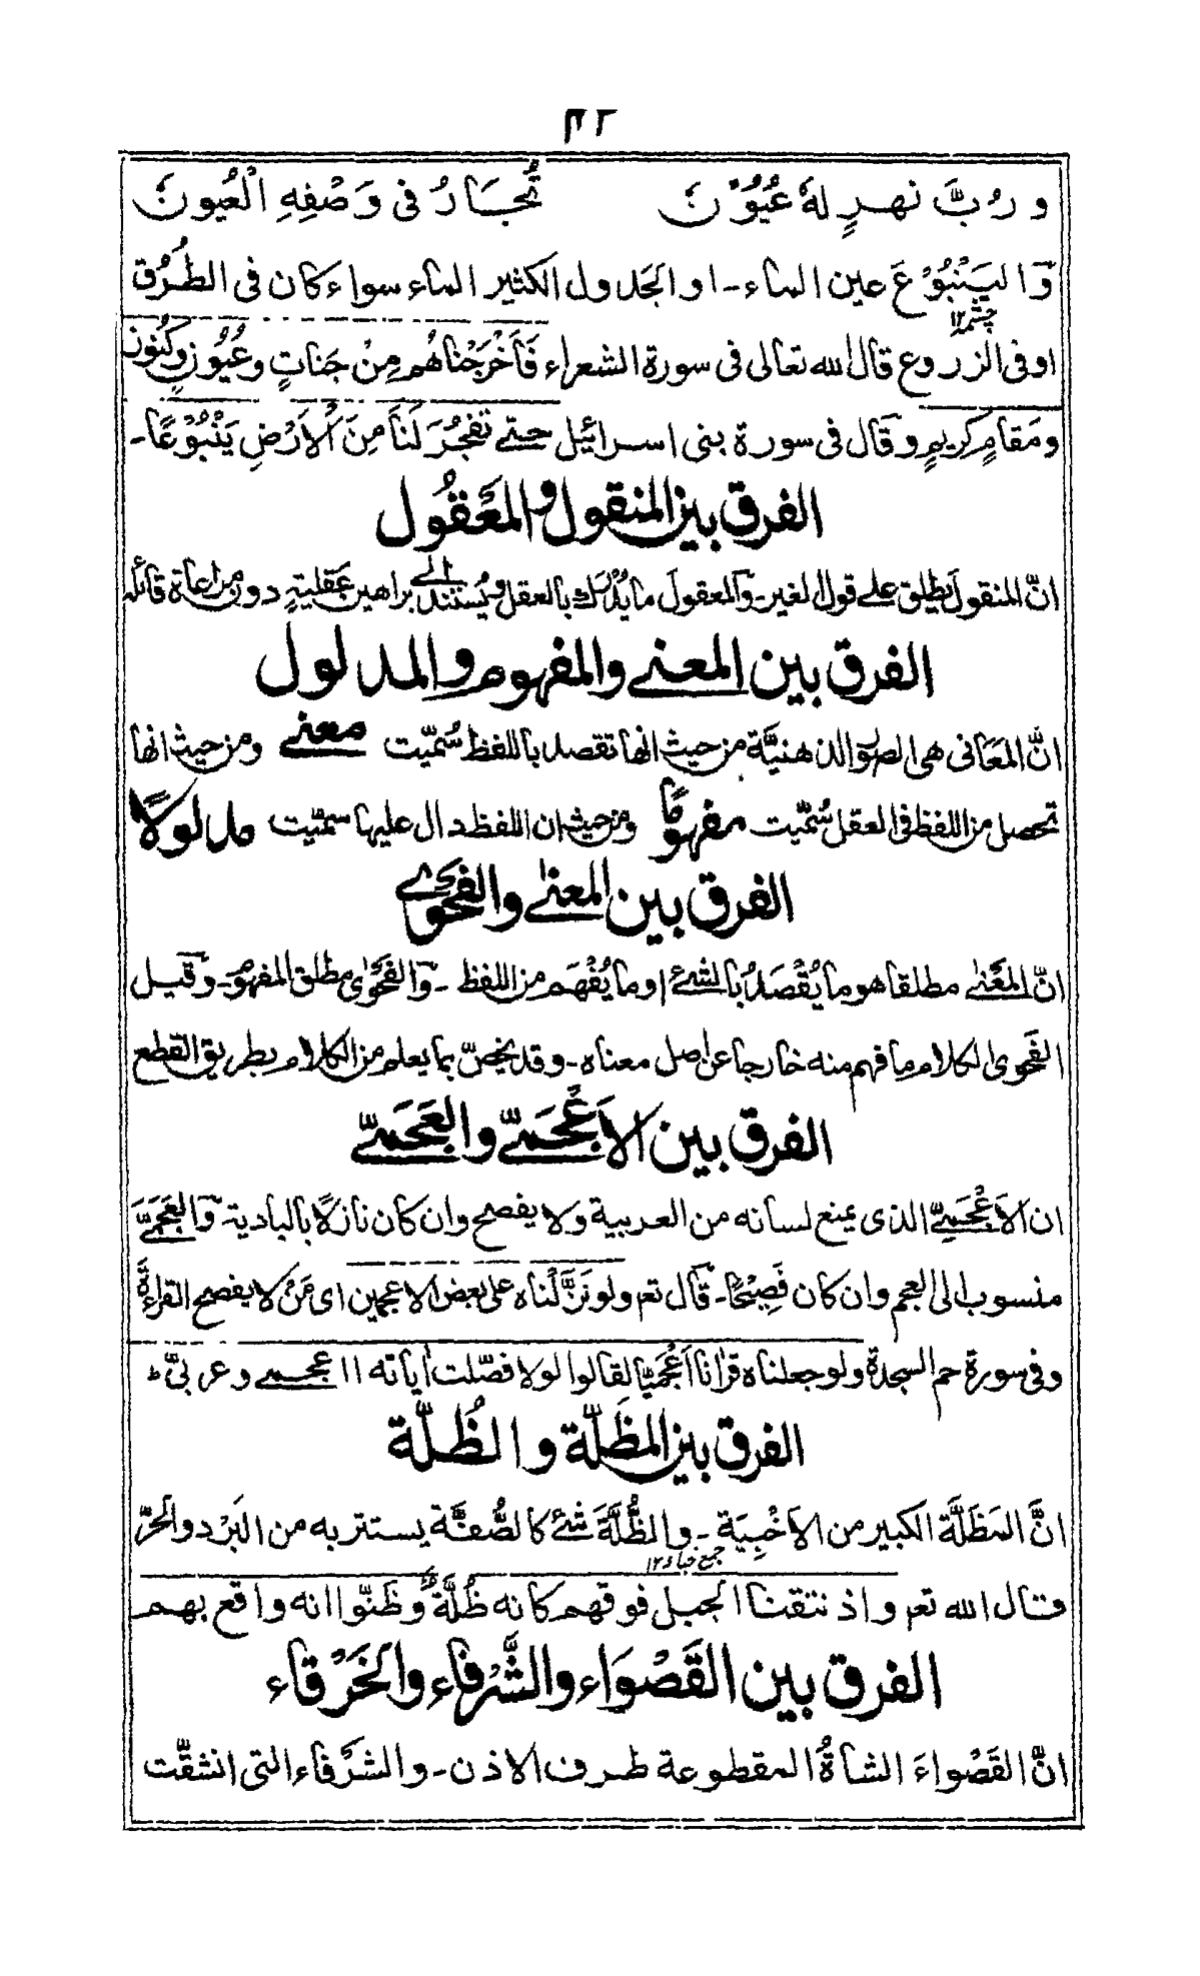 ٤٢
و رُبَّ نهرٍ لهٗ عُيُوْنٌ تُحَارُ فى وَصْفِهِ الْعُيونُ
وَاليَنْبُوْعَ عين الماء ـ او الجَدول الكثير الماء سواء كان فى الطُرُق
چشمہ ١٢
اوفى الزروع قال الله تعالى فى سورة الشعراء فَاَخْرَجْناهُم مِنْ جَناتٍ وعُيُونٍ وكُنُوزٍ
ومَقامٍ كريمٍ وقال فى سورة بنى اسرائيل حتے تفجُرَ لَنَا مِنَ الْاَرْضِ يَنْبُوْعًا ـ
الفرق بين المنقول والمَعْقُول
انّ المنقول يطلق علے قول الغير ـ والمعقول ما يُدْرَك بالعقل ويُستند الے براهين عقليةٍ دون مراعاة قائله
الفرق بين المعنے والمفهوم والمدلول
انَّ المَعَانى هى الصور الذهنيَّة من حيث انها تقصد باللفظ سُمّيت معنے ومن حيث انها
تحصل من اللفظ فى العقل سُمّيت مفهومًا ومن حيث ان اللفظ دال عليها سمّيت مدلولًا
الفرق بين المعنىٰ والفحْوٰے
انّ المَعْنىٰ مطلقا هو ما يُقْصَدُ بالشئ او ما يُفْهَم من اللفظ ـ والفَحْوٰى مطلق المفهوم ـ وقيل
الفَحْوى الكلام ما فهم منه خارجا عن اصل معناه ـ وقد يخصّ بما يعلم من الكلام بطريق القطع
الفرق بين الاَعْجَمىّ والعَجَمىّ
ان الاَعْجَمىّ الذى يمنع لسانه من العربية ولا يفصح وان كان نازلًا بالبادية والعَجَمىَّ
منسوب الى العجم وان كان فَصِيْحًا ـ قال تعم ولو نَزَّلْناه على بعض الاعجمين اى مَنْ لا يفصح القراءة
وفى سورة حم السجدة ولو جعلناه قرٰانا اَعْجَميًّا لقالوا لولا فصّلت اٰياته ااعجمے وعربىٌّ ط
الفرق بين المظَلّة والظُلّة
انَّ المَظَلَّة الكبير من الاَخْبِيَة ـ والظُّلَّةَ شئ كالصُّفَّة يستتر به من البَرْد والحرّ
جمع خباء ١٢
قال الله تعم واذ نتقنا الجبل فوقهم كانه ظُلَّةٌ وظَنّوا انه واقع بهم
الفرق بين القَصْوَاء والشَّرْفاء والخَرْقاء
انَّ القَصْواءَ الشاةُ المقطوعة طرف الاذن ـ والشَرْفاء التى انشقّت